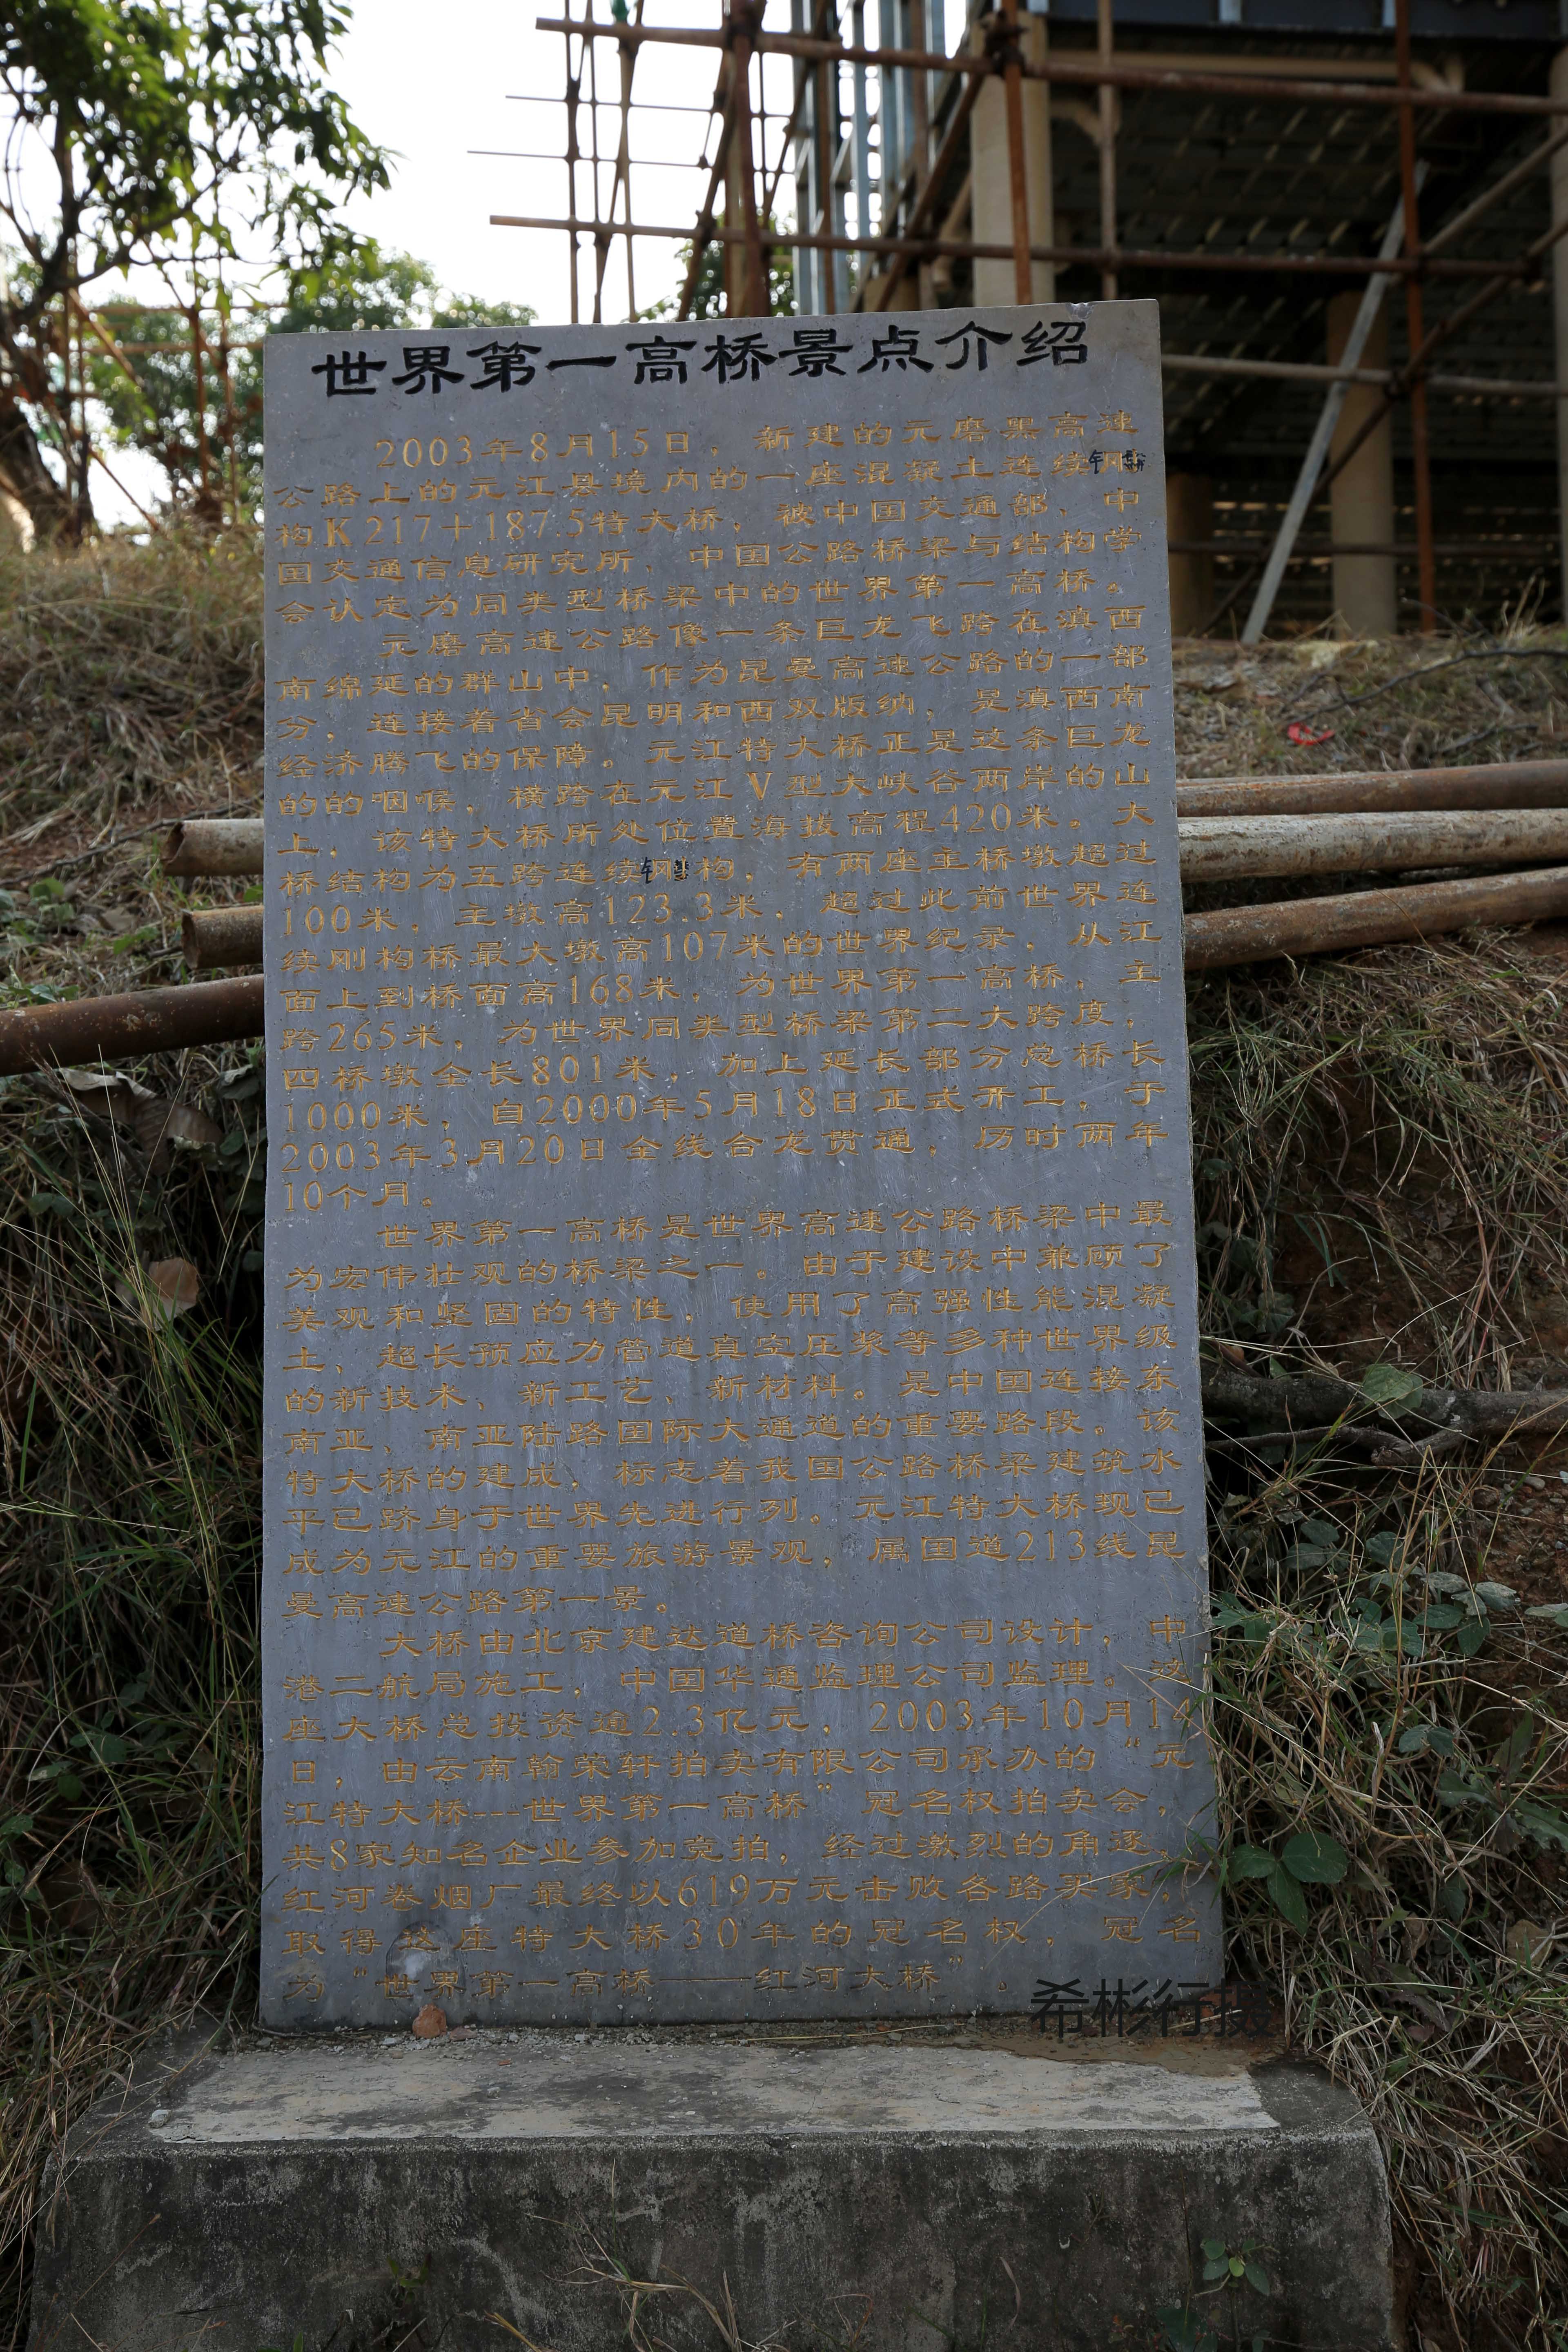 世界第一高桥景点介绍
2003年8月15日，新建的元磨黑高速
公路上的元江县境内的一座混凝土连续刚
构K217+187.5特大桥，被中国交通部、中
国交通信息研究所、中国公路桥梁与结构学
会认定为同类型桥梁中的世界第一高桥。
元磨高速公路像一条巨龙飞跨在滇西
南绵延的群山中，作为昆曼高速公路的一部
分，连接着省会昆明和西双版纳，是滇西南
经济腾飞的保障。元江特大桥正是这条巨龙
的的咽喉，横跨在元江V型大峡谷两岸的山
上，该特大桥所处位置海拔高程420米。大
桥结构为五跨连续刚构，有两座主桥墩超过
100米，主墩高123.3米，超过此前世界连
续刚构桥最大墩高107米的世界纪录，从江
面上到桥面高168米，为世界第一高桥，主
跨265米，为世界同类型桥梁第二大跨度，
四桥墩全长801米，加上延长部分总桥长
1000米，自2000年5月18日正式开工，于
2003年3月20日全线合龙贯通，历时两年
10个月。
世界第一高桥是世界高速公路桥梁中最
为宏伟壮观的桥梁之一。由于建设中兼顾了
美观和坚固的特性，使用了高强性能混凝
土、超长预应力管道真空压浆等多种世界级
的新技术、新工艺、新材料。是中国连接东
南亚、南亚陆路国际大通道的重要路段。该
特大桥的建成，标志着我国公路桥梁建筑水
平已跻身于世界先进行列。元江特大桥现已
成为元江的重要旅游景观，属国道213线昆
曼高速公路第一景。
大桥由北京建达道桥咨询公司设计，中
港二航局施工，中国华通监理公司监理，这
座大桥总投资逾2.3亿元，2003年10月14
日，由云南翰荣轩拍卖有限公司承办的“元
江特大桥---世界第一高桥”冠名权拍卖会，
共8家知名企业参加竞拍，经过激烈的角逐，
红河卷烟厂最终以619万元击败各路买家，
取得这座特大桥30年的冠名权，冠名
为“世界第一高桥——红河大桥”。
希彬行摄